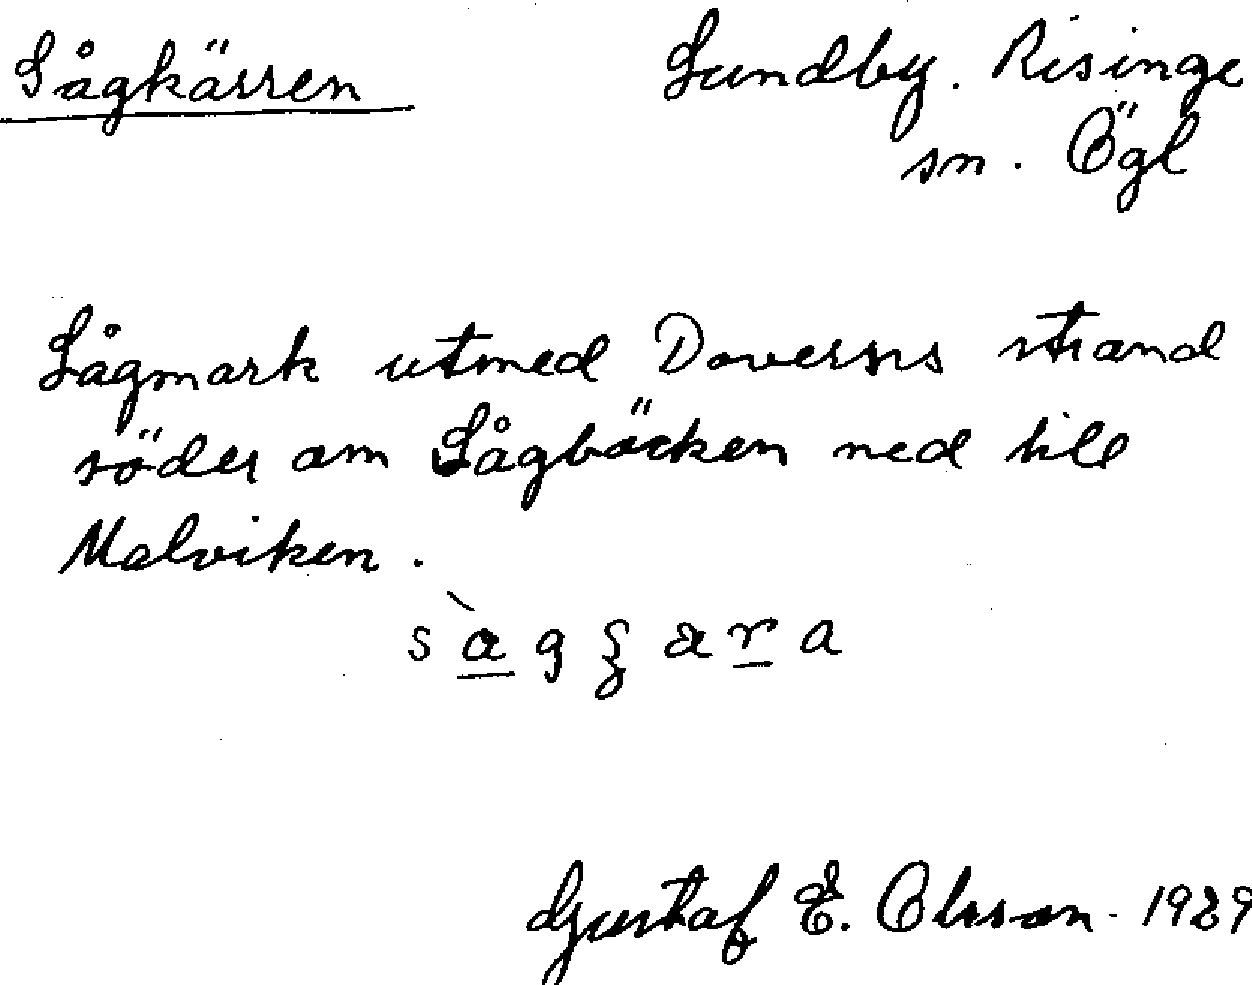 Sågkärren
Lundby. Risinge
sn. Ögl
Lågmark utmed Doverns strand
söder om Sågbäcken ned till
Malviken.
s à g æ r a
Gustaf E. Olsson. 1929